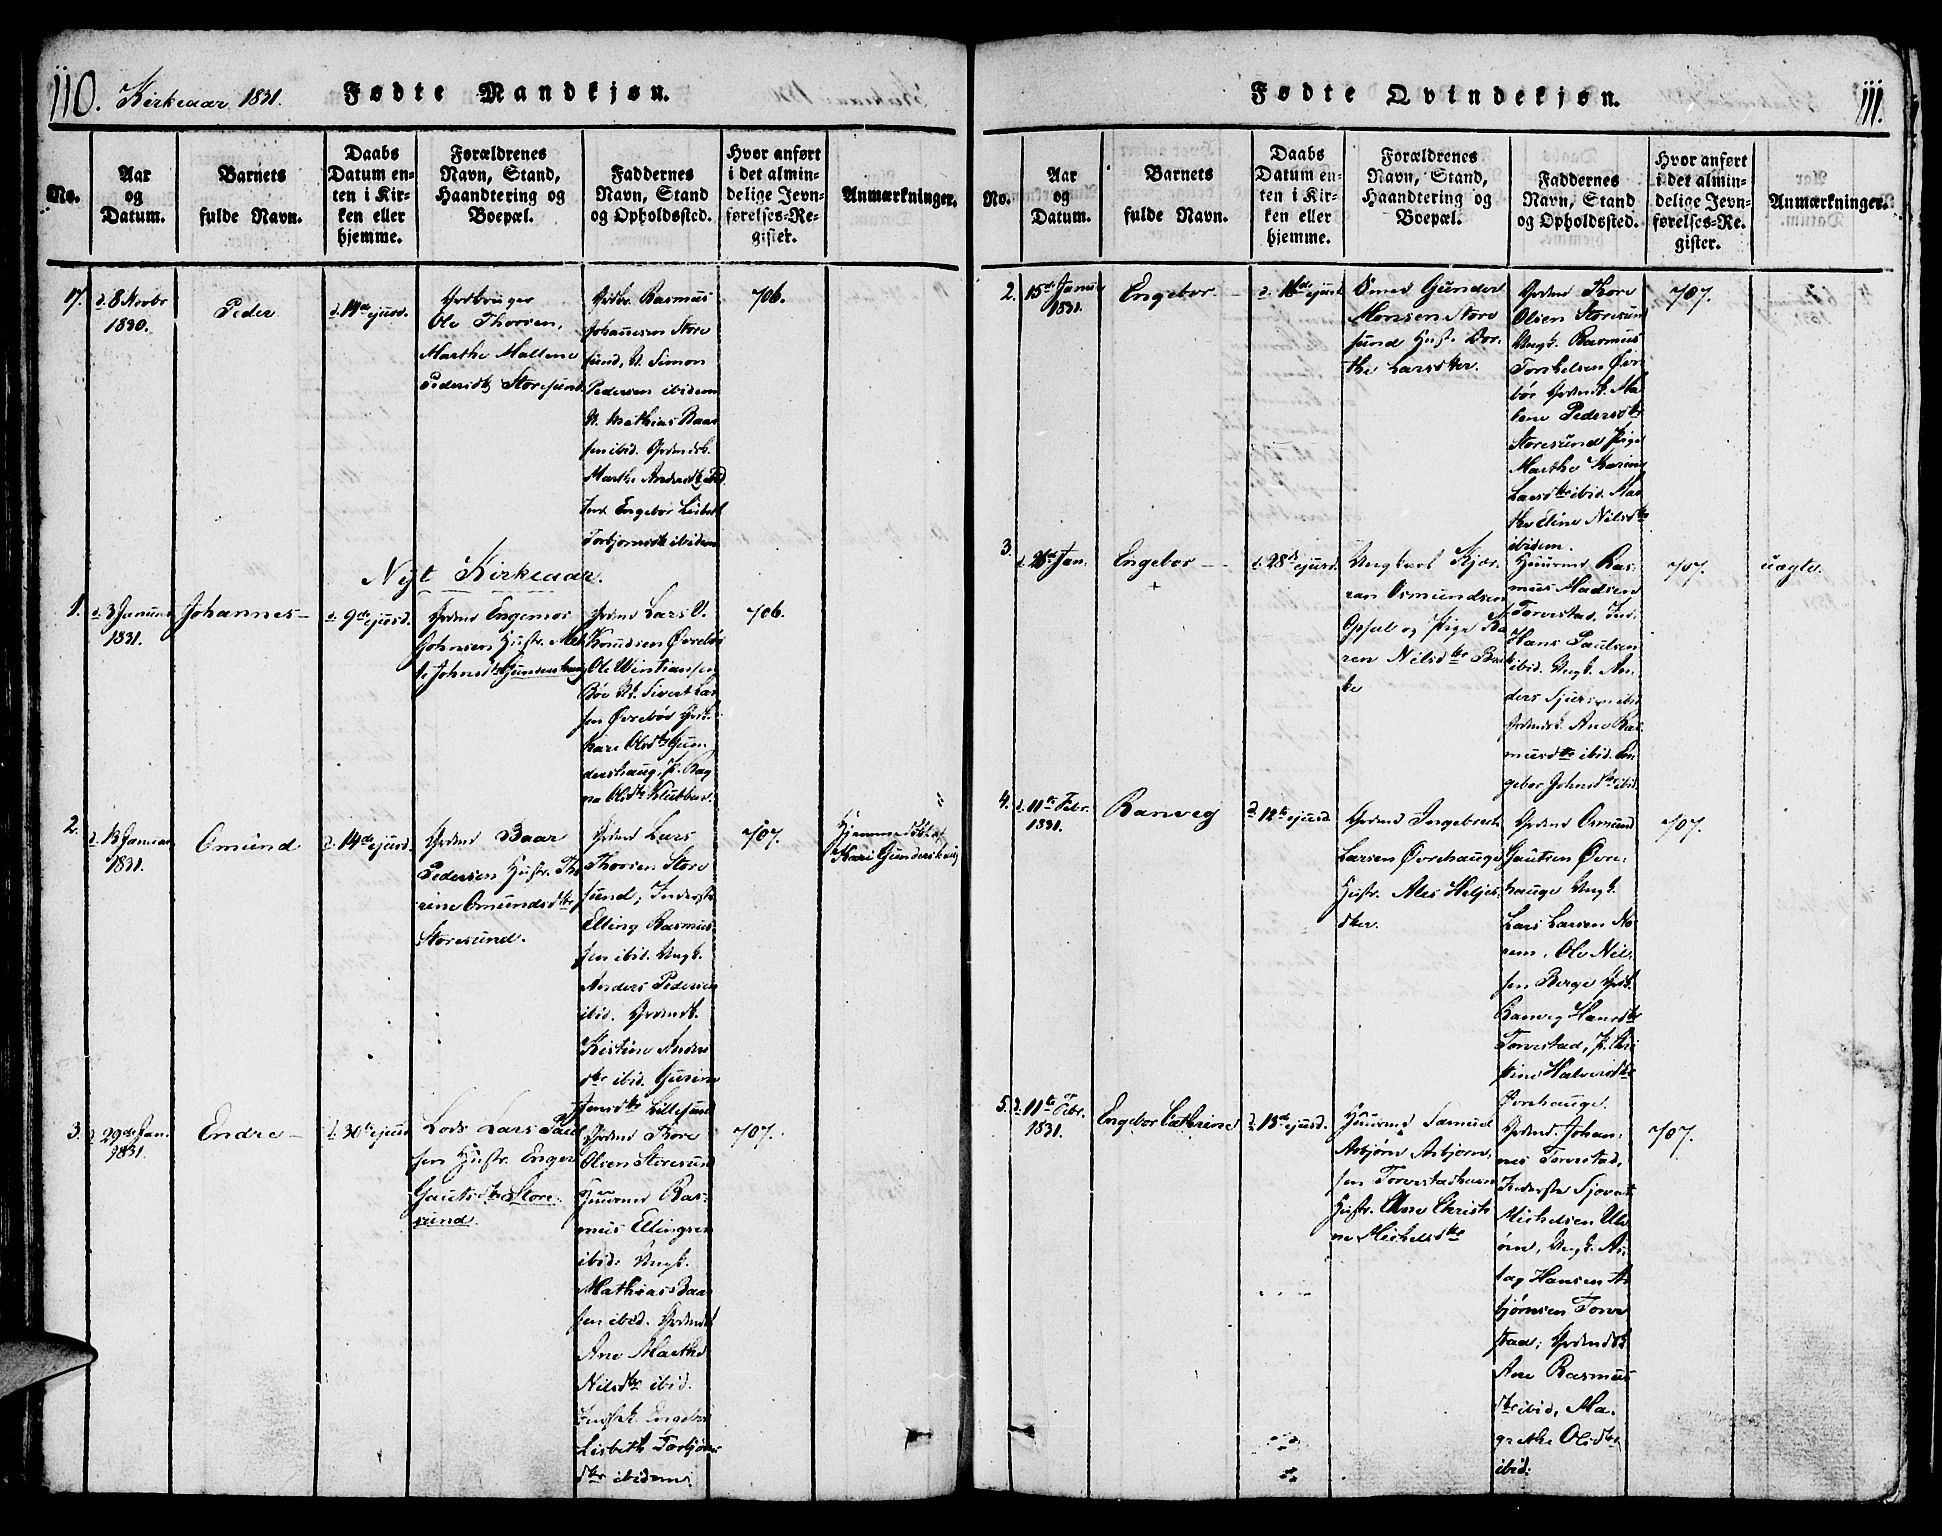 110. Kirkeaar 1831. Fødte Mandkjøn.
No.
Aar
og
Datum.
Barnets
fulde Navn.
Daabs
Datum en-
ten i Kir-
ken eller
hjemme.
Forældrenes
Navn, Stand,
Haandtering og
Boepæl.
Faddernes
Navn, Stand
og Opholdssted.
Hvor anført
i det almin-
delige Jevn-
førelses-Re-
gister.
Anmærkninger.
17.
d. 8 Novbr
1830.
Peder
d. 14de ejusd.
Ole Thorsen,
Marthe Mallene
Pedersdtr Storesund
Rasmus
Johannesen Store
sund, U. Simon
Pedersen ibidem
U. Mathias Baar
sen ibid.
Marthe Andersdtr ibid
Engebor Lisbeth
Torbjørnsdtr ibidem
706.
Nyt Kirkeaar.
1.
d. 3 Januar
1831.
Johannes
d. 9de ejusd.
Engemor
Johnsen Hustr. Met
te Johnsdtr Gunderhaug
Lars O.
Knudsen Øvrebø
Ole Wintiansen
Bøe U. Sivert Lar
sen Øvrebøe
Kari Olsdtr Gun
dershaug, P. Rag
na Olsdtr Klubben.
706.
2.
d. 13 Januar
1831.
Omund
d. 14de ejusd.
Baar
Pedersen Hustr. Tho
rine Omundsdtr
Storesund.
Lars
Thorsen Store
sund, Inderste
Elling Rasmus
sen ibid. Ungk.
Anders Pedersen
ibid.
Kistine Anders
dtr ibid. Gurine
Jensdtr Lillesund
707.
Hjemmedøbt af
Kari Gundershaug
3.
d. 29de Jan.
1831.
Endre
d. 30te ejusd
Lods Lars Paul
sen Hustr. Enger
Gautsdtr Store-
sund.
Tore
Olsen Storesund
Huusmd Ras-
mus Ellingsen
ibid. Ungk.
Mathias Baar
sen ibid.
Ane Marthe
Nilsdtr ibid.
Engebor
Lisbeth Torbjørns
dtr ibidem.
707.
Fødte Qvindekjøn. 111.
No.
Aar
og
Datum.
Barnets
fulde Navn.
Daabs
Datum en-
ten i Kir-
ken eller
hjemme.
Forældrenes
Navn, Stand,
Haandtering og
Boepæl.
Faddernes
Navn, Stand
og Opholdssted.
Hvor anført
i det almin-
delige Jevn-
førelses-Re-
gister.
Anmærkninger.
2.
15de Januar
1831.
Engebor
d. 16de ejusd
Smed Gunder
Monsen Store
sund Hust. Dor-
the Larsdtter.
Tore
Olsen Storesund
Ungk. Rasmus
Torkelsen Øvre
bø Ma
lene Pedersdtr
Storesund Pige
Marthe Karine
Larsdtr ibid. Mar
the Eline Nilsdtr
ibidem.
707.
3.
d. 26de Jan.
Engebor
+
d. 28de ejusd.
Ungkarl Kjør-
ran Osmundsen
Opsal og Pige Ka
ren Nilsdtr Bark
ke
Huusmd Ras-
mus Madsen
Torvestad, Ind.
Hans Paulsen
ibid. Ungk. An-
ders Sjursen ibid
Ane Ras-
musdtr ibid. En-
gebor Johnsdtr ibid.
707.
uægte.
4.
d. 11te Febr.
1831.
Ranveg
d. 12te ejusd
Ingebreth
Larsen Øvrehauge
Hustr. Ales Heljes
dter.
Osmund
Gautsen Øvre-
hauge Ungk.
Lars Larsen No
rem, Ole Nil-
sen Berge
Ranveg Hansdtr
Torvestad, P. Kri
stine Halversdtr
Øvrehauge.
707.
5.
d. 11te Febr.
1831.
Engebor Cathrine
d. 13de ejusd.
Huusmd Samuel
Asbjørn Asbjørn-
sen Torvestadhuen
Hustr. Ane Christi
ne Michelsdtr
Johan-
nes Torvestad,
Inderste Sjovat
Michelsen Ulv
øen, Ungk. As-
lag Hansen As
bjørnsen Torve
stad,
Ane Rasmus
dtr ibid, Ma-
grethe Olsdtr
ibid.
707.